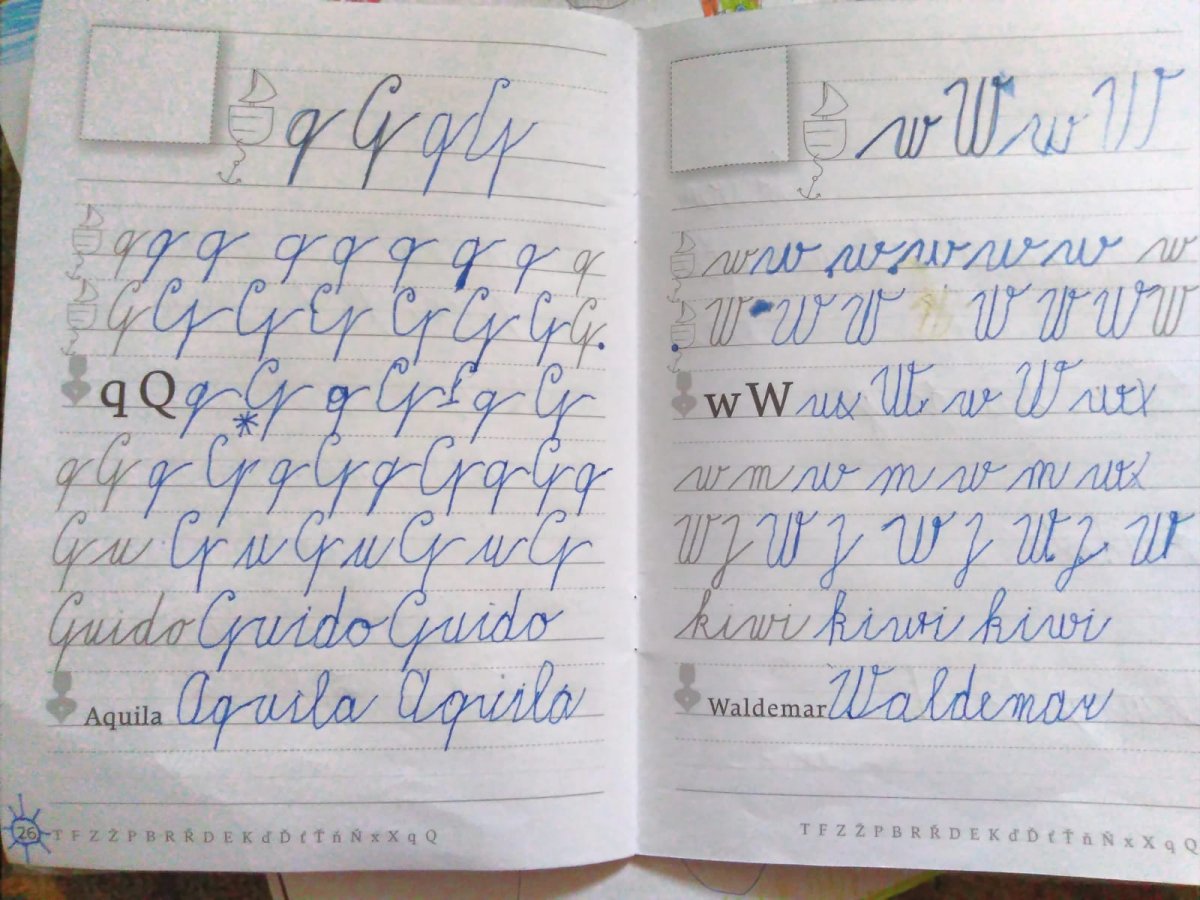 q Q q Q
q q q q q q q q q
Q Q Q Q Q Q Q Q
q Q q Q q Q q Q
q Q q Q q Q q Q q Q q
Q u Q u Q u Q u Q
Quido Quido Quido
Aquila Aquila Aquila
26 T F Z Ž P B R Ř D E K ď Ď ť Ť ň Ň x X q Q
w W w W
w w w w w w w
W W W W W W W
w W w W w W w
w m w m w m w
W J W J W J W J W
kiwi kiwi kiwi
Waldemar Waldemar
T F Z Ž P B R Ř D E K ď Ď ť Ť ň Ň x X q Q